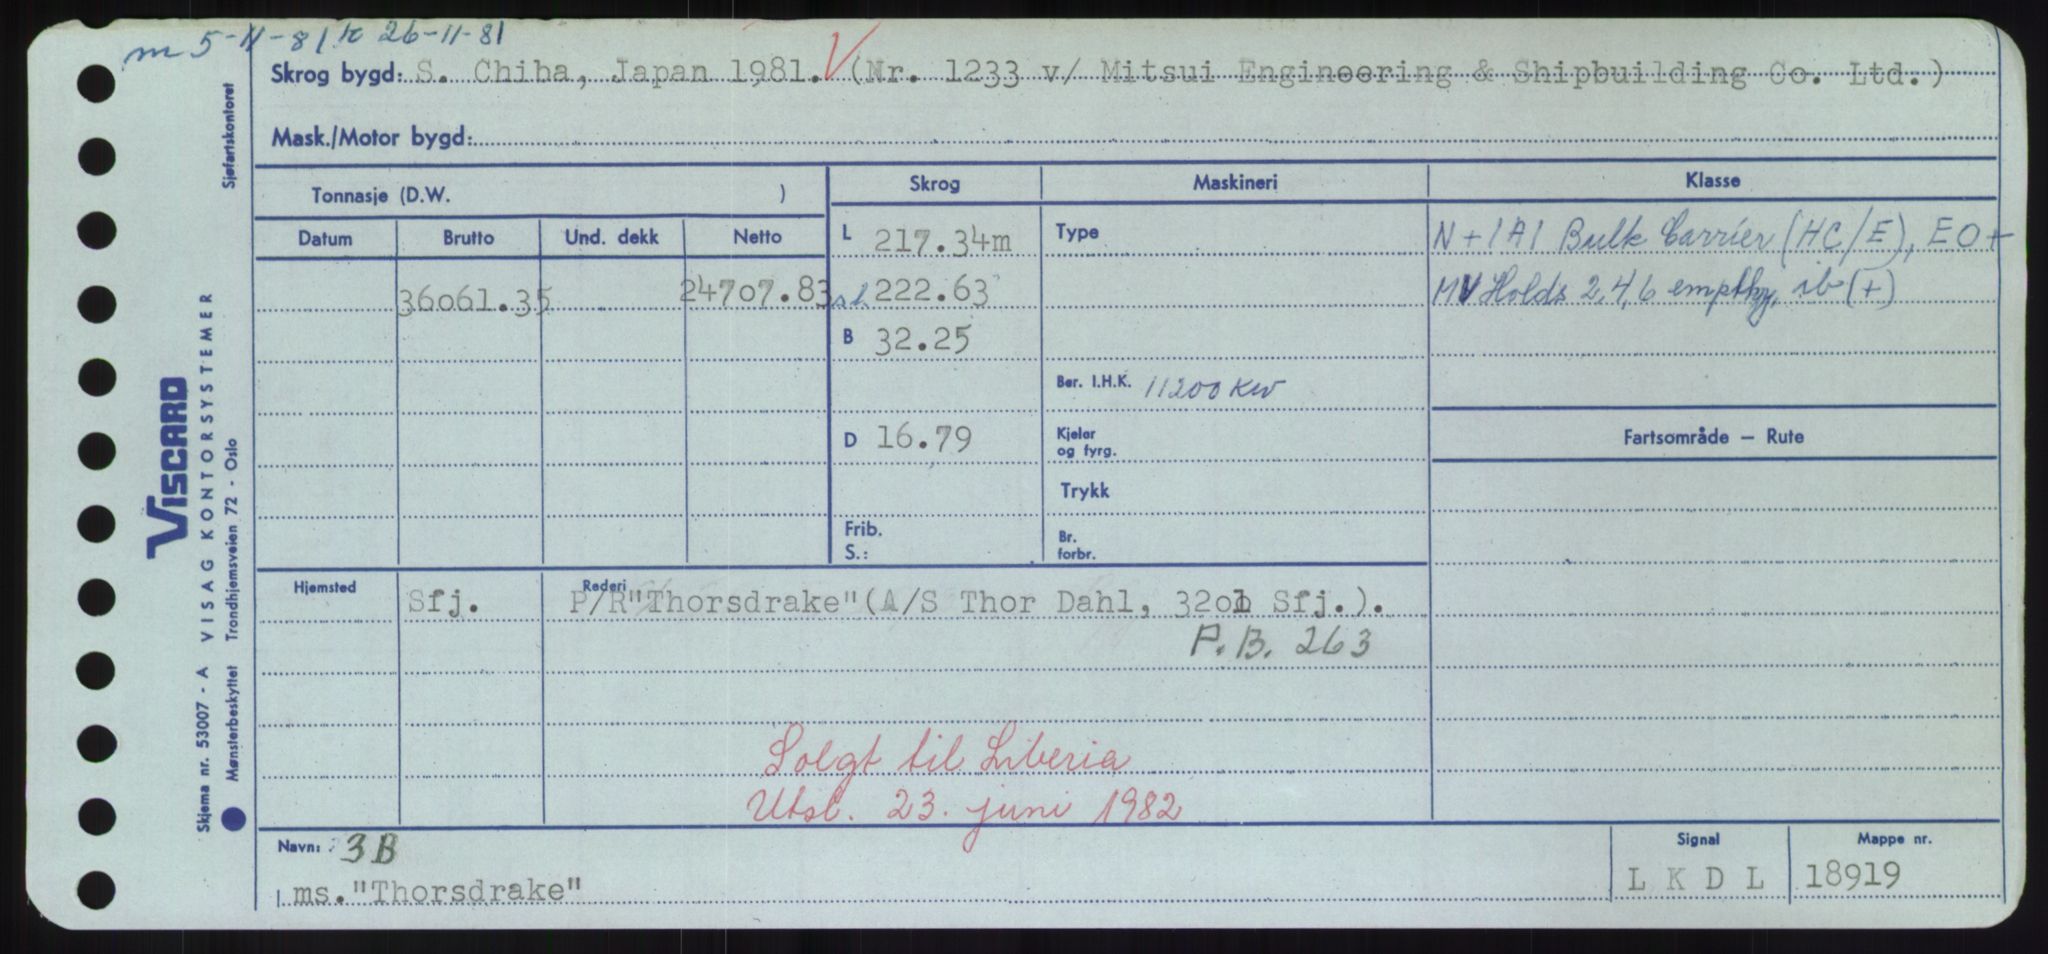 m 5-11-81 k 26-11-81
Skrog bygd: S. Chiba, Japan 1981. V (Nr. 1233 v/ Mitsui Engineering & Shipbuilding Co. Ltd.)
Mask./Motor bygd:
Tonnasje (D.W. )
Skrog
Maskineri
Klasse
Datum
Brutto
Und. dekk
Netto
36061.35
24707.83
L 217.34m
222.63
B 32.25
D 16.79
Frib.
S.:
Type
Ber. I.H.K. 11200 KW
Kjeler
og fyrg.
Trykk
Br.
forbr.
N + 1A1 Bulk Carrier (HC/E), EO +
MV Holds 2,4,6 empthy, ib (+)
Fartsområde – Rute
Hjemsted
Sfj.
Rederi
P/R"Thorsdrake"(A/S Thor Dahl, 3201 Sfj.).
P.B. 263
Solgt til Liberia
Utsl. 23. juni 1982
Navn: 3B
ms."Thorsdrake"
Signal
L K D L
Mappe nr.
18919
VISCARD
Skjema nr. 53007 - A VISAG KONTORSYSTEMER
Mønsterbeskyttet Trondhjemsveien 72 - Oslo
Sjøfartskontoret